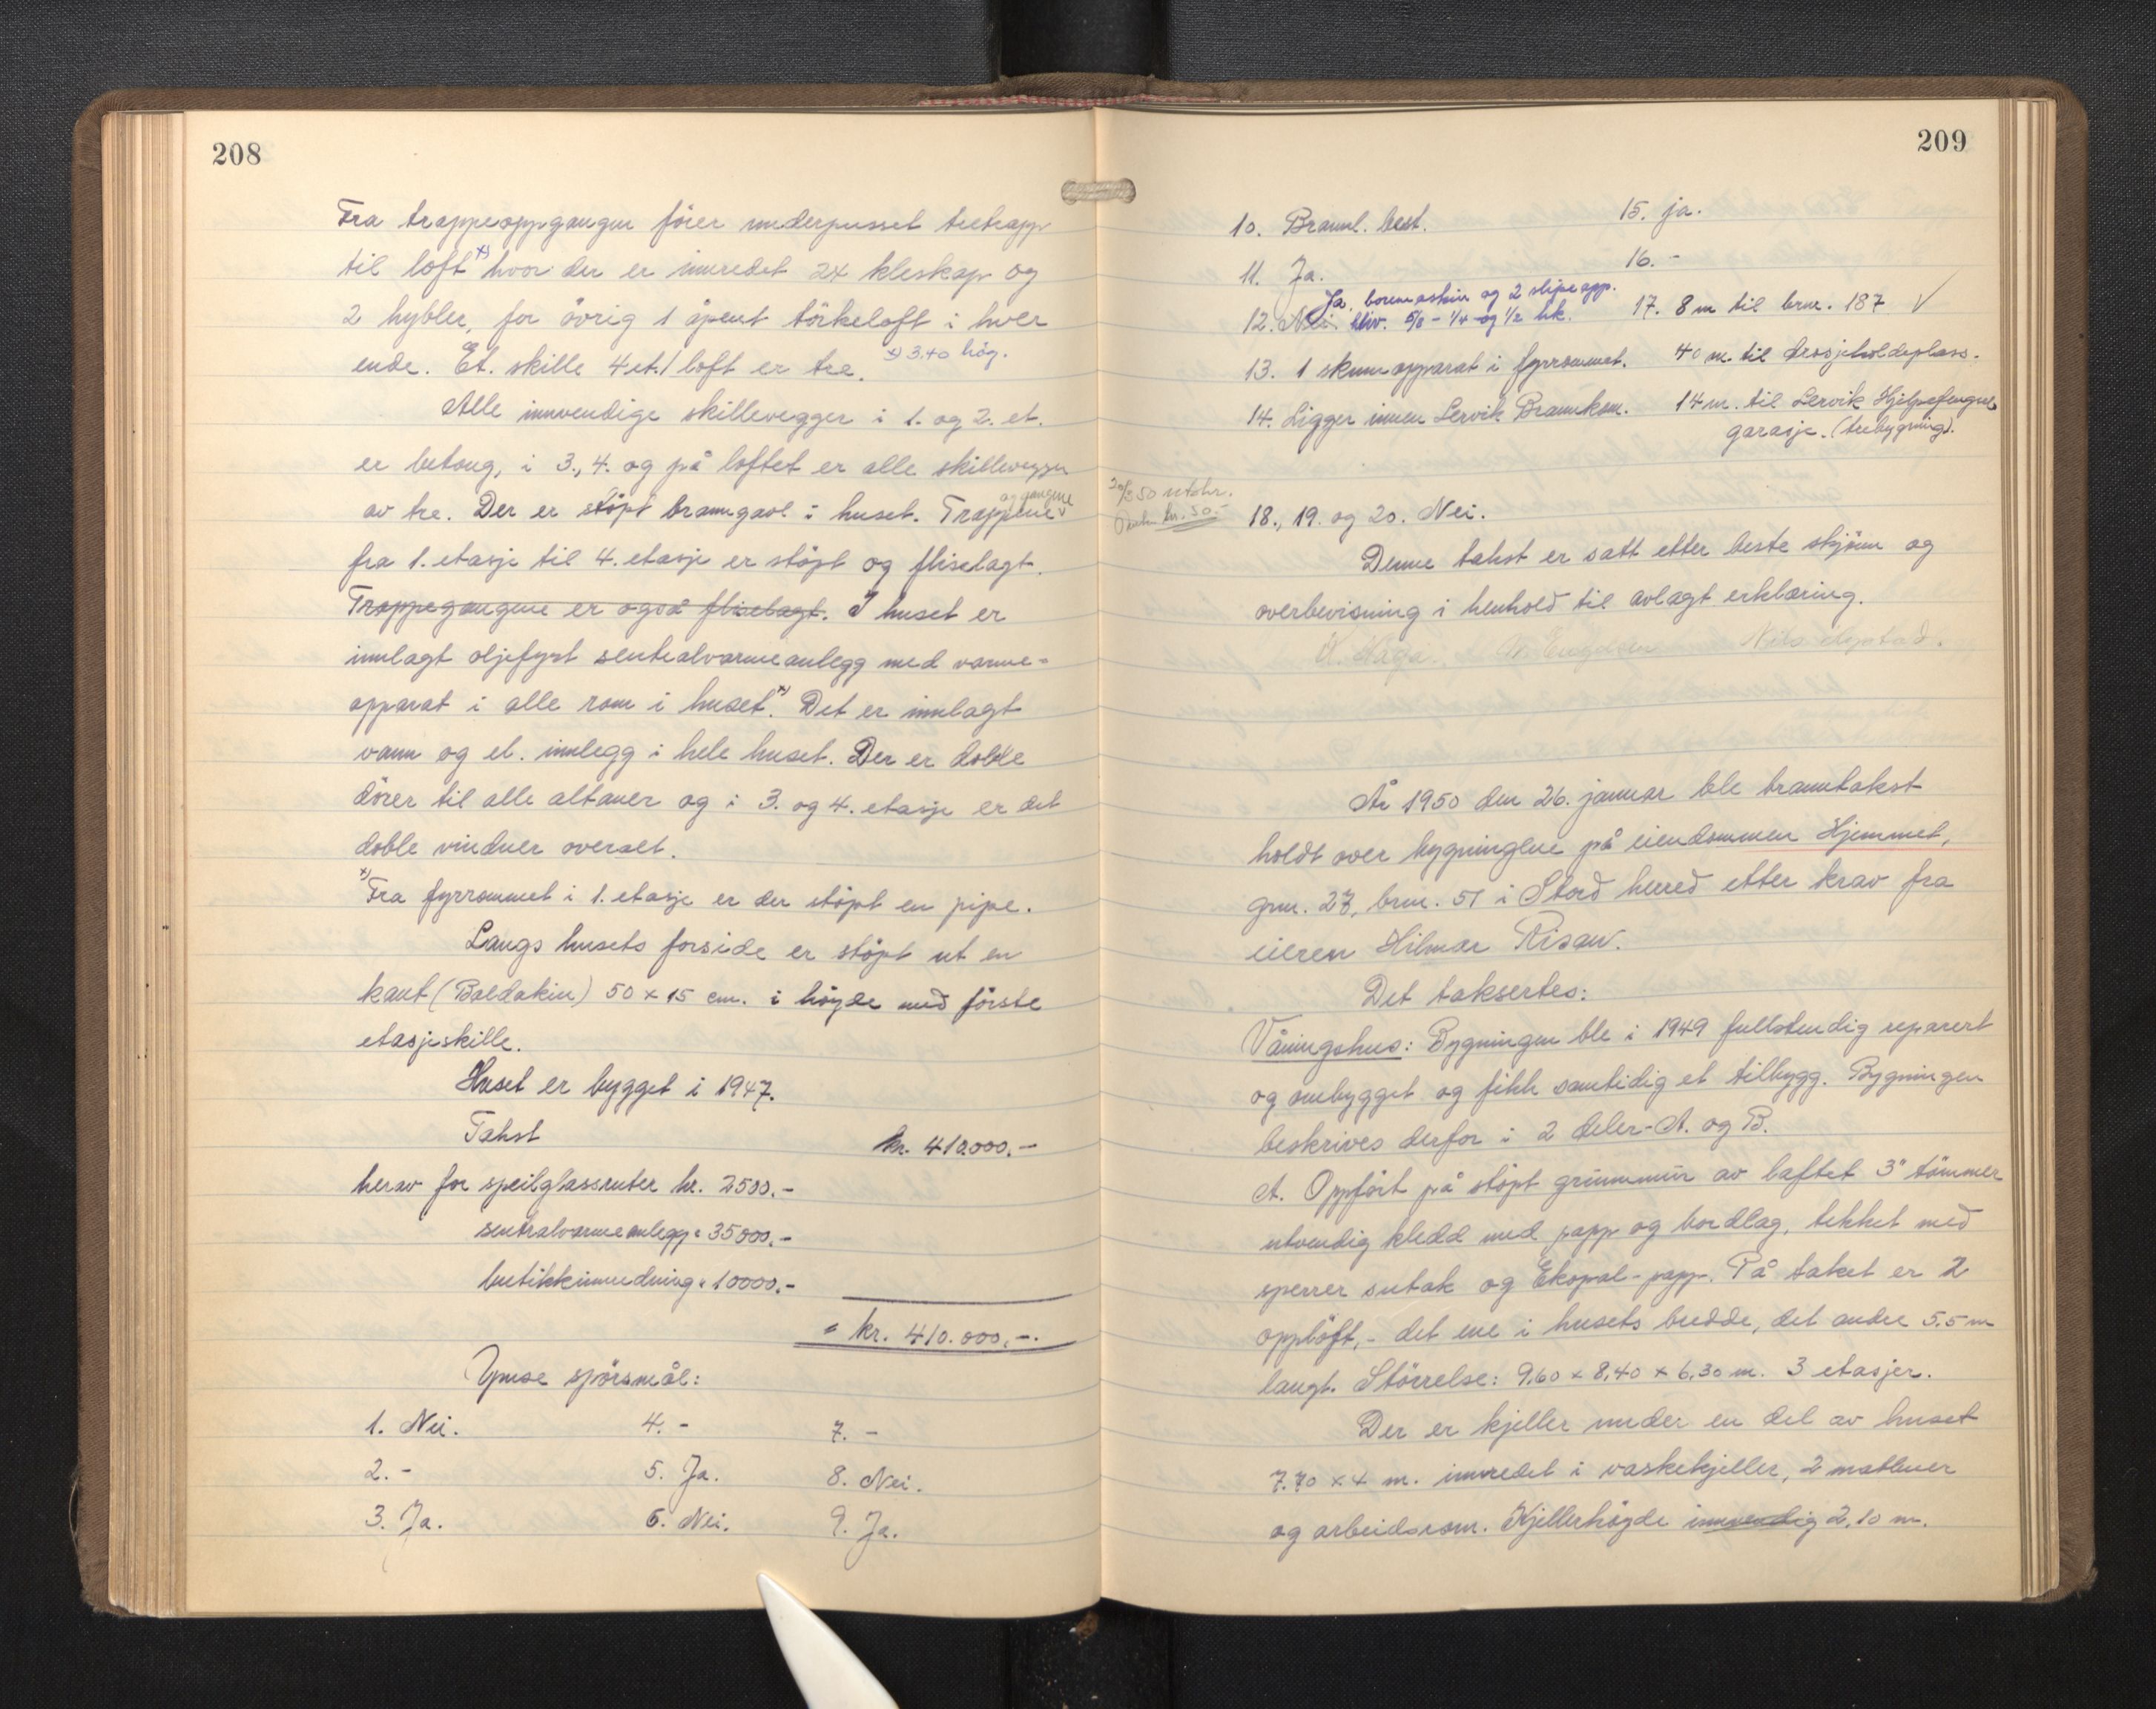 208
Fra trappeoppgangen förer underpusset tretrapp
til loft x) hvor der er innredet 24 kleskap og
2 hybler, for övrig 1 åpent törkeloft i hver
ende. Et. skille 4 et./loft er tre. x) 3.40 hög.
Alle innvendige skillevegger i 1. og 2. et.
er betong, i 3., 4. og på loftet er alle skillevegger
av tre. Der er stöpt branngavl i huset. Trappene og gangene
fra 1. etasje til 4. etasje er stöpt og fliselagt.
Trappegangene er også fliselagt. I huset er
innlagt oljefyrt sentralvarmeanlegg med varme-
apparat i alle rom i huset. x) Det er innlagt
vann og el. innlegg i hele huset. Der er doble
dörer til alle altaner og i 3. og 4. etasje er det
doble vinduer overalt.
x) Fra fyrrommet i 1. etasje er der stöpt en pipe.
Langs husets forside er stöpt ut en
kant (Baldakin) 50 x 15 cm. i höyde med förste
etasjeskille.
Huset er bygget i 1947.
Takst kr. 410.000.-
herav for speilglassruter kr. 2500.-
sentralvarmeanlegg " 35000.-
butikkinnredning " 10000.-
= kr. 410.000.-.
Ymse spörsmål:
1. Nei. 4. - 7. -
2. - 5. Ja. 8. Nei.
3. Ja. 6. Nei. 9. Ja.
209
10. Brannl. best. 15. ja.
11. Ja. 16. -
Ja. boremaskin og 2 slipeapp.
12. Nei. hliv. 5/8 - 1/4 og 1/2 hk. 17. 8 m til brnr. 187 ✓
13. 1 skumapparat i fyrrommet. 40 m. til drosjeholdeplass.
14. Ligger innen Lervik Brannkom. 14 m. til Lervik Hjelpefengsels
garasje. (trebygning).
20/2 50 utskr.
kr. 50.-
18., 19. og 20. Nei.
Denne takst er satt etter beste skjönn og
overbevisning i henhold til avlagt erklæring.
K. Haga. Nils
År 1950 den 26. januar ble branntakst
holdt over bygningene på eiendommen Hjemmet,
gnr. 27, brnr. 51 i Stord herred etter krav fra
eieren Hilmar Risan.
Det taksertes:
Våningshus: Bygningen ble i 1949 fullstendig reparert
og ombygget og fikk samtidig et tilbygg. Bygningen
beskrives derfor i 2 deler - A. og B.
A. Oppfört på stöpt grunnmur av laftet 3" tömmer
utvendig kledd med papp og bordlag, tekket med
sperrer sutak og Ekopal-papp. På taket er 2
opplöft, - det ene i husets bredde, det andre 5.5 m
langt. Störrelse: 9,60 x 8,40 x 6,30 m. 3 etasjer.
Der er kjeller under en del av huset
7.70 x 4 m. innredet i vaskekjeller, 2 matbuer
og arbeidsrom. Kjellerhöyde innvendig 2,10 m.